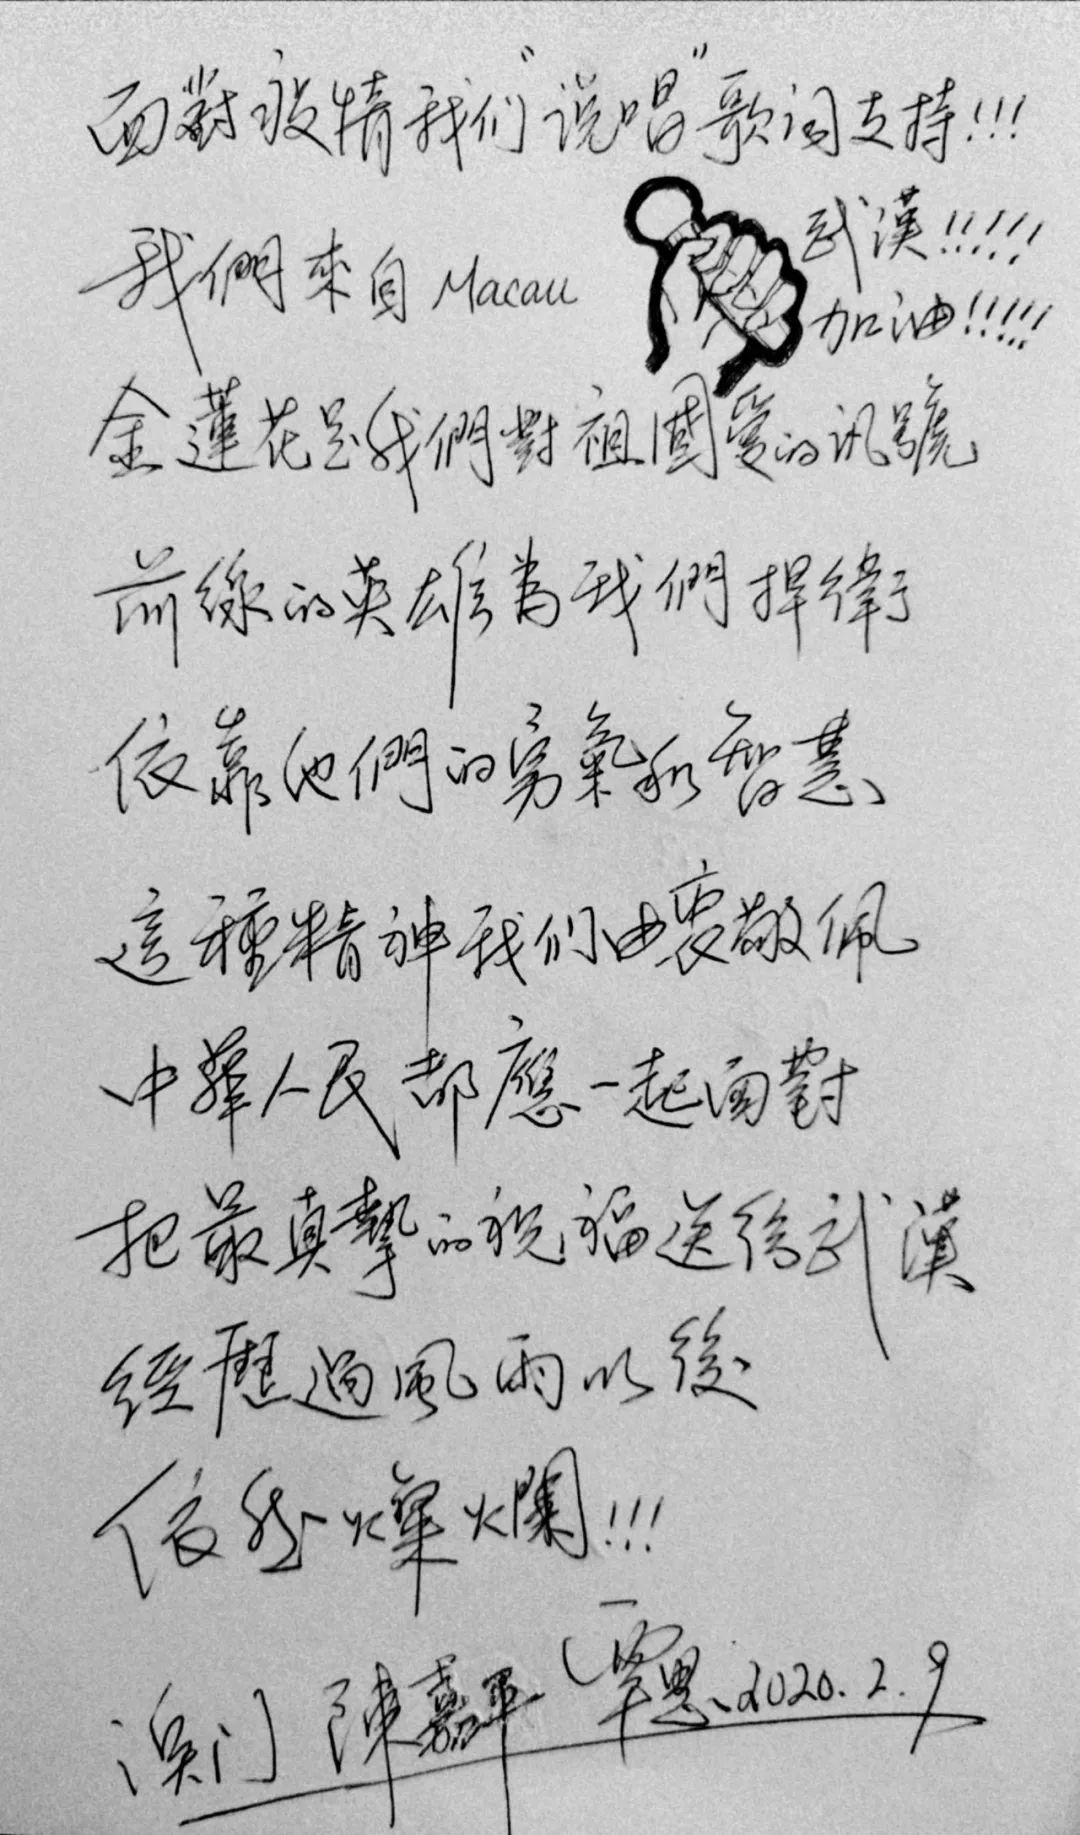 面對疫情我们“说唱”歌词支持!!!
我們來自Macau
武漢!!!!!
加油!!!!!
金蓮花是我們對祖國愛的訊號
前線的英雄為我們捍衛
依靠他們的勇氣和智慧
這種精神我们由衷敬佩
中華人民都應一起面對
把最真摯的祝福送給武漢
經歷過風雨以後
依然燦爛!!!
澳门 陳嘉 覃思 2020.2.9